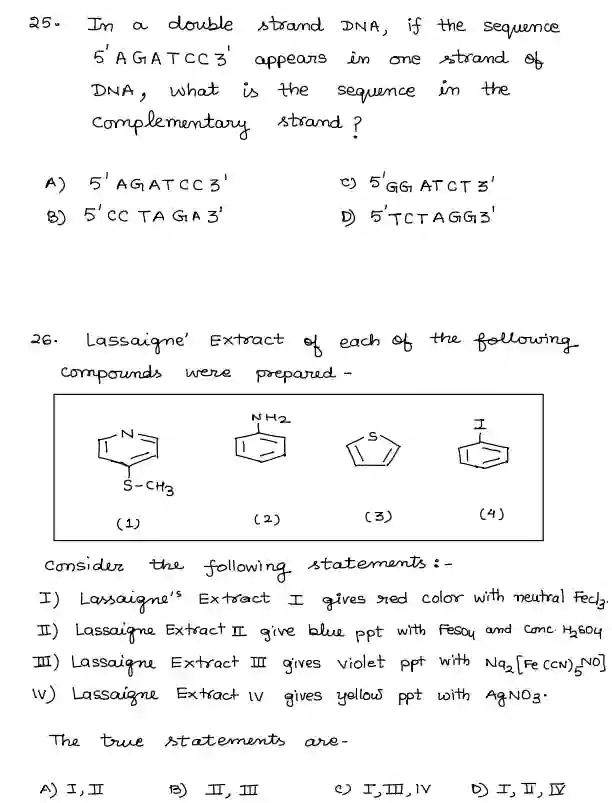 25. In a double strand DNA, if the sequence
5' AGATCC 3' appears in one strand of
DNA, what is the sequence in the
complementary strand ?
A) 5' AGATCC 3'
C) 5' GG ATCT 3'
B) 5' CC TA GA 3'
D) 5' TCTAGG 3'
26. Lassaigne' Extract of each of the following
compounds were prepared -
N
S-CH3
(1)
NH2
(2)
S
(3)
I
(4)
Consider the following statements :-
I) Lassaigne's Extract I gives red color with neutral Fecl3.
II) Lassaigne Extract II give blue ppt with FeSO4 and conc. H2SO4
III) Lassaigne Extract III gives violet ppt with Na2[Fe(CN)5NO]
IV) Lassaigne Extract IV gives yellow ppt with AgNO3.
The true statements are-
A) I, II B) II, III C) I, III, IV D) I, II, IV